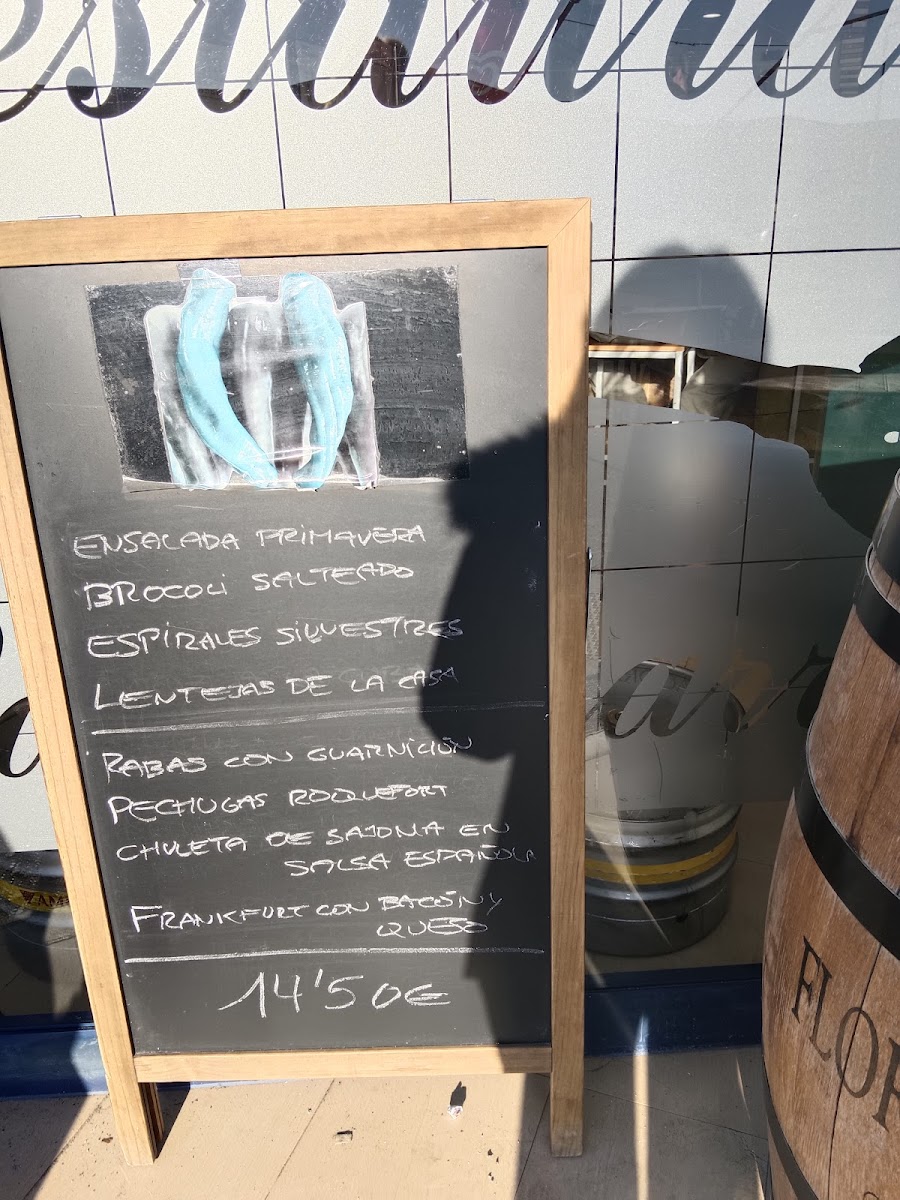 ENSALADA PRIMAVERA
BROCOLI SALTEADO
ESPIRALES SILVESTRES
LENTEJAS DE LA CASA
RABAS CON GUARNICIÓN
PECHUGAS ROQUEFORT
CHULETA DE SAJONIA EN
SALSA ESPAÑOLA
FRANKFURT CON BACÓN Y
QUESO
14'50€
FLOR